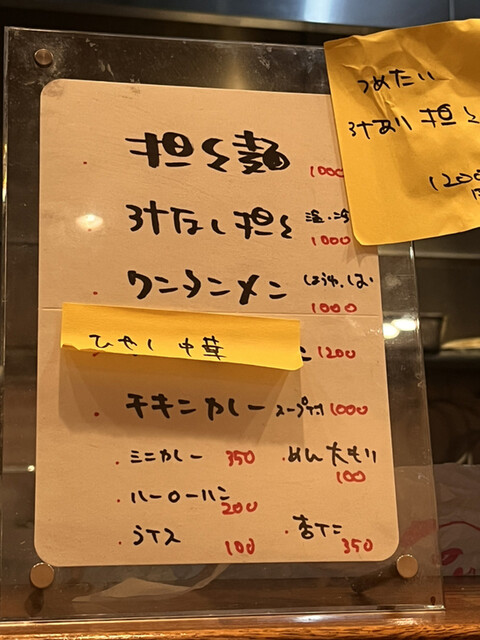 つめたい
汁あり 担々
1200
担々麺 1000
汁なし担々 温・冷 1000
ワンタンメン しょうゆ、しお 1000
ひやし中華 1200
チキンカレー スープ付 1000
・ミニカレー 350 ・めん大もり 100
・ルーローハン 200
・ライス 100 ・杏仁 350